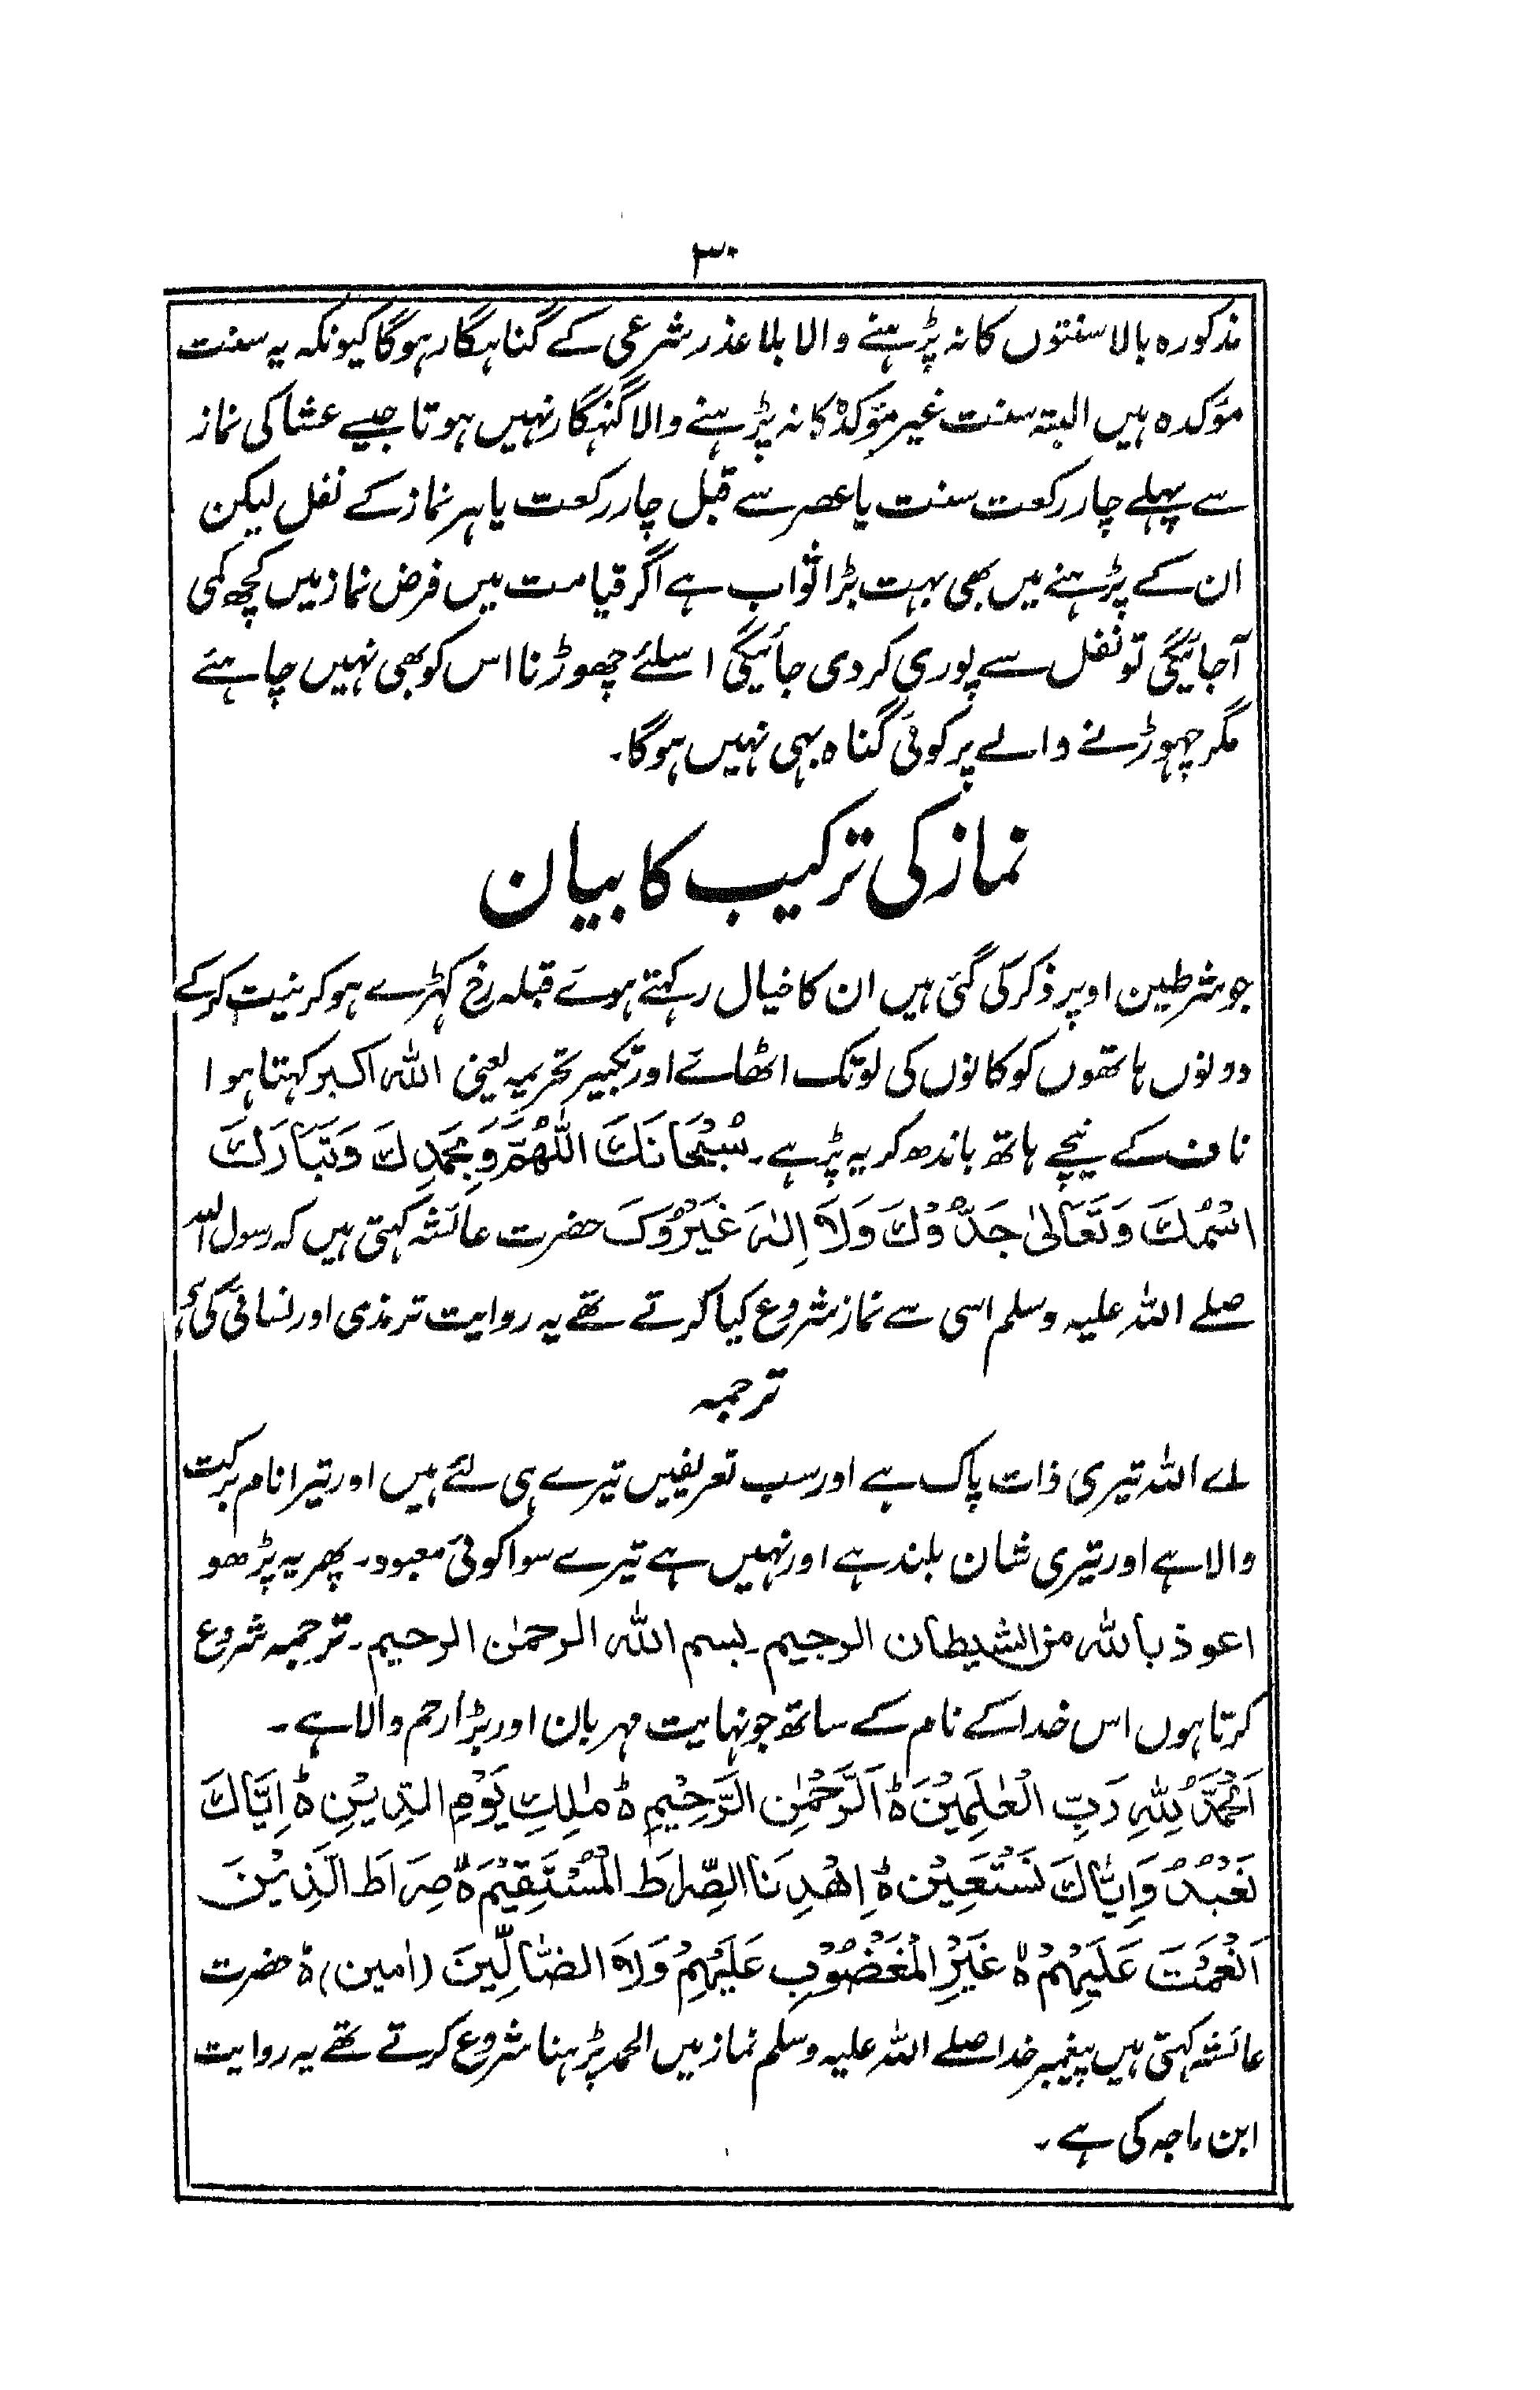 ۳۰
مذکورہ بالا سنتوں کا نہ پڑہنے والا بلا عذر شرعی کے گناہگار ہوگا کیونکہ یہ سنت
مؤکدہ ہیں البتہ سنت غیر مؤکدہ کا نہ پڑہنے والا گنہگار نہیں ہوتا جیسے عشا کی نماز
سے پہلے چار رکعت سنت یا عصر سے قبل چار رکعت یا ہر نماز کے نفل لیکن
ان کے پڑہنے میں بھی بہت بڑا ثواب ہے اگر قیامت میں فرض نماز میں کچھ کمی
آجائیگی تو نفل سے پوری کر دی جائیگی اسلئے چھوڑنا اس کو بھی نہیں چاہئے
مگر چہوڑنے والے پر کوئی گناہ بہی نہیں ہوگا۔
نماز کی ترکیب کا بیان
جو شرطین اوپر ذکر کی گئی ہیں ان کا خیال رکہتے ہوئے قبلہ رخ کہڑے ہو کر نیت کرکے
دونوں ہاتھوں کو کانوں کی لو تک اٹھائے اور تکبیر تحریمہ یعنی اللہ اکبر کہتا ہوا
ناف کے نیچے ہاتھ باندھ کر یہ پڑہے۔ سُبْحَانَكَ اللّٰهُمَّ وَبِحَمْدِكَ وَتَبَارَكَ
اسْمُكَ وَتَعَالٰی جَدُّوْكَ وَلَا اِلٰہَ غَیْرُوْكَ حضرت عائشہ کہتی ہیں کہ رسول اللہ
صلے اللہ علیہ وسلم اسی سے نماز شروع کیا کرتے تھے یہ روایت ترمذی اور نسائی کی ہے
ترجمہ
اے اللہ تیری ذات پاک ہے اور سب تعریفیں تیرے ہی لئے ہیں اور تیرا نام برکت
والا ہے اور تیری شان بلند ہے اور نہیں ہے تیرے سوا کوئی معبود۔ پھر یہ پڑھو
اعوذ باللہ من الشیطان الرجیم۔ بسم اللہ الرحمٰن الرحیم۔ ترجمہ شروع
کرتا ہوں اس خدا کے نام کے ساتھ جو نہایت مہربان اور بڑا رحم والا ہے۔
اَلْحَمْدُ لِلّٰهِ رَبِّ الْعٰلَمِیْنَ ہ اَلرَّحْمٰنِ الرَّحِیْمِ ہ مٰلِكِ یَوْمِ الدِّیْنِ ہ اِیَّاكَ
نَعْبُدُ وَاِیَّاكَ نَسْتَعِیْنُ ہ اِهْدِنَا الصِّرَاطَ الْمُسْتَقِیْمَ ہ صِرَاطَ الَّذِیْنَ
اَنْعَمْتَ عَلَیْهِمْ ہ غَیْرِ الْمَغْضُوْبِ عَلَیْهِمْ وَلَا الضَّالِّیْنَ (اٰمین) ہ حضرت
عائشہ کہتی ہیں پیغمبر خدا صلے اللہ علیہ وسلم نماز میں الحمد پڑہنا شروع کرتے تھے یہ روایت
ابن ماجہ کی ہے۔